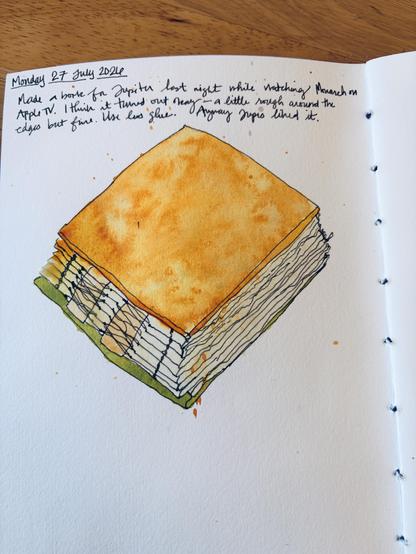 Monday 27 July 2026
Made a book for Jupiter last night while watching Monarch on
Apple TV. I think it turned out okay — a little rough around the
edges but fine. Use less glue. Anyway Jupie liked it.